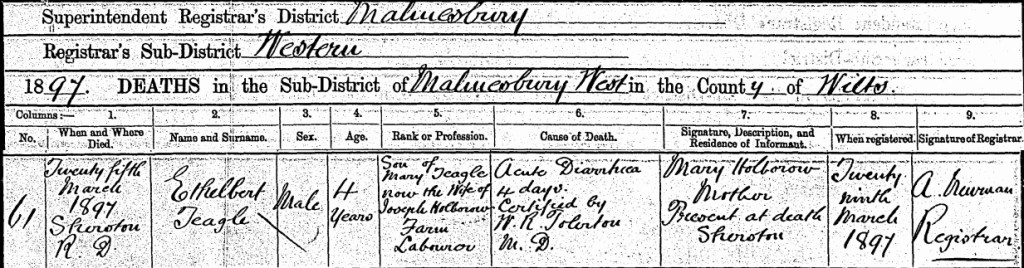 Superintendent Registrar's District Malmesbury
Registrar's Sub-District Western
1897. DEATHS in the Sub-District of Malmesbury West in the County of Wilts.
Columns:— 1. 2. 3. 4. 5. 6. 7. 8. 9.
No. When and Where Died. Name and Surname. Sex. Age. Rank or Profession. Cause of Death. Signature, Description, and Residence of Informant. When registered. Signature of Registrar.
61
Twenty fifth
March
1897
Sherston
R. D.
Ethelbert
Teagle
Male
4
Years
Son of
Mary Teagle
now the Wife of
Joseph Holborow
Farm
Labourer
Acute Diarrhœa
4 days.
Certified by
W. R. Tolerton
M. D.
Mary Holborow
Mother
Present at death
Sherston
Twenty
ninth
March
1897
A. Newman
Registrar